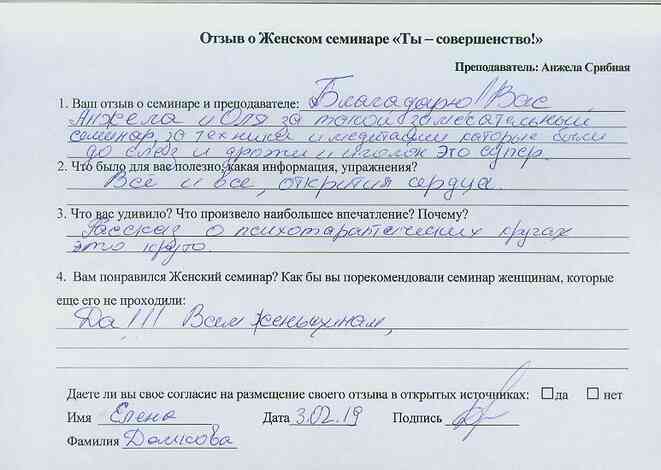 Отзыв о Женском семинаре «Ты – совершенство!»
Преподаватель: Анжела Срибная
1. Ваш отзыв о семинаре и преподавателе: Благадарю! Вас
Анжела и Оля за такой замесательный
семинар, за техники и медитации которые были
до слез и дрожи и иголок это супер.
2. Что было для вас полезно, какая информация, упражнения?
Все и все, открытия сердца.
3. Что вас удивило? Что произвело наибольшее впечатление? Почему?
Рассказ о
это круто.
4. Вам понравился Женский семинар? Как бы вы порекомендовали семинар женщинам, которые
еще его не проходили:
Да!!! Всем женьщинам,
Даете ли вы свое согласие на размещение своего отзыва в открытых источниках: да нет
Имя Елена Дата 3.02.19 Подпись
Фамилия